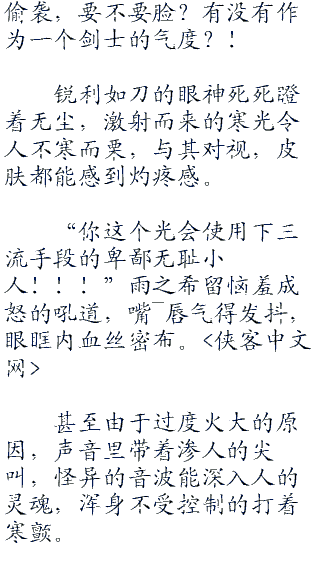 偷袭，要不要脸？有没有作
为一个剑士的气度？！
锐利如刀的眼神死死瞪
着无尘，激射而来的寒光令
人不寒而栗，与其对视，皮
肤都能感到灼疼感。
“你这个光会使用下三
流手段的卑鄙无耻小
人！！！”雨之希留恼羞成
怒的吼道，嘴唇气得发抖，
眼眶内血丝密布。<侠客中文
网>
甚至由于过度火大的原
因，声音里带着渗人的尖
叫，怪异的音波能深入人的
灵魂，浑身不受控制的打着
寒颤。